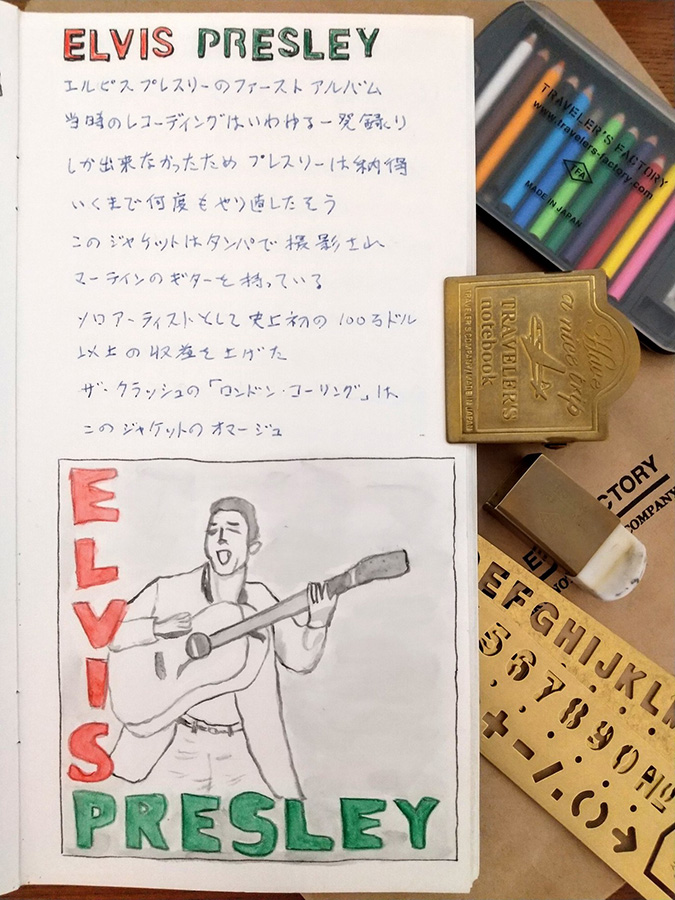 ELVIS PRESLEY
エルビス プレスリーのファースト アルバム
当時のレコーディングはいわゆる一発録り
しか出来なかったため プレスリーは納得
いくまで何度もやり直したそう
このジャケットはタンパで撮影され
マーティンのギターを持っている
ソロアーティストとして史上初の100万ドル
以上の収益を上げた
ザ・クラッシュの「ロンドン・コーリング」は
このジャケットのオマージュ
ELVIS
PRESLEY
TRAVELER'S FACTORY
www.travelers-factory.com
TFA
MADE IN JAPAN
Have
a nice trip
TRAVELER'S
notebook
TRAVELER'S COMPANY MADE IN JAPAN
CTORY
COMPANY
DEFGHIJKLM
567890 No
+-/.,()→